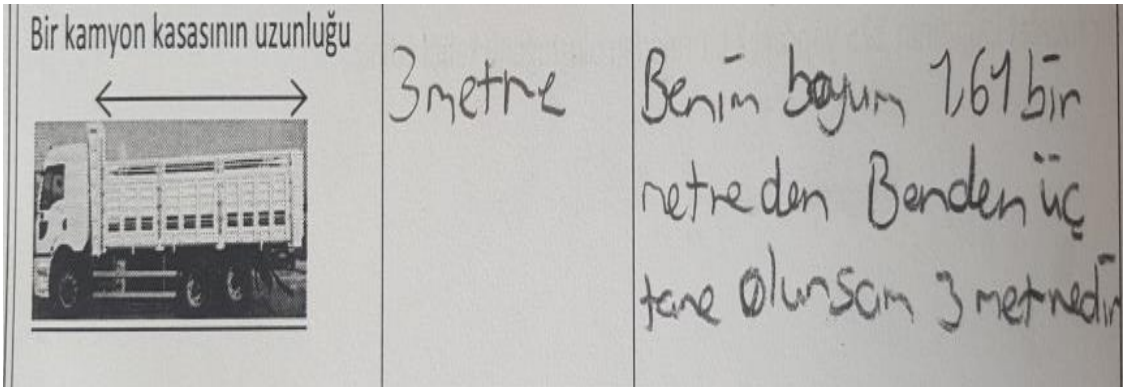 Bir kamyon kasasının uzunluğu
3 metre
Benim boyum 1,61 bir
metreden Benden üç
tane olursam 3 metredir